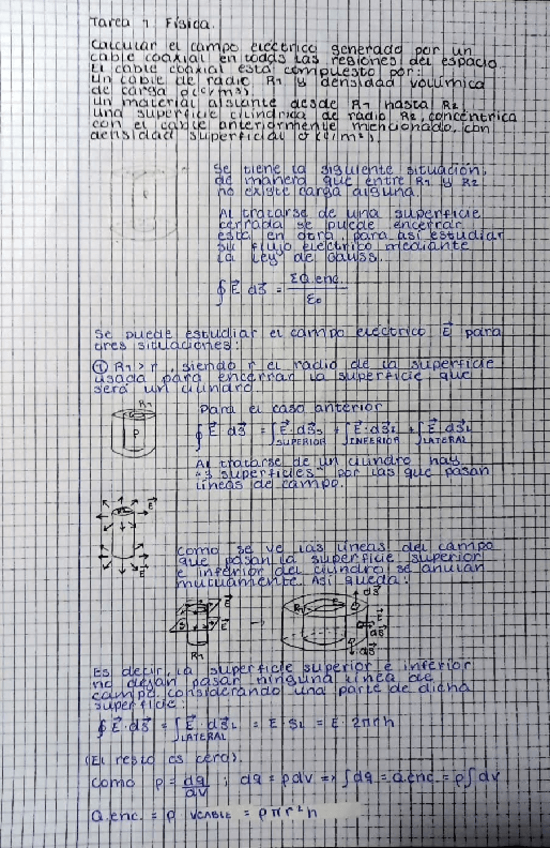 Tarea 1 Física.
Calcular el campo eléctrico generado por un
cable coaxial en todas las regiones del espacio.
El cable coaxial está compuesto por:
un cable de radio R1 y densidad volúmica
de carga ρ(c/m3).
un material aislante desde R1 hasta R2.
una superficie cilíndrica de radio R2, concéntrica
con el cable anteriormente mencionado, con
densidad superficial σ (c/m2).
Se tiene la siguiente situación,
de manera que entre R1 y R2
no existe carga alguna.
Al tratarse de una superficie
cerrada se puede encerrar
esta en otra, para así estudiar
su flujo eléctrico mediante
la Ley de Gauss.
∮ E⃗ dS⃗ = ΣQ enc. / ε0
Se puede estudiar el campo eléctrico E⃗ para
tres situaciones:
① R1 > r, siendo r el radio de la superficie
usada para encerrar la superficie que
será un cilindro
R1
ρ
Para el caso anterior
∮ E⃗ · dS⃗ = ∫ E⃗ · dS⃗s + ∫ E⃗ · dS⃗i + ∫ E⃗ · dS⃗L
SUPERIOR INFERIOR LATERAL
Al tratarse de un cilindro hay
"3 superficies" por las que pasan
líneas de campo.
E⃗
E⃗
Como se ve las líneas del campo
que pasan la superficie superior
e inferior del cilindro se anulan
mutuamente. Así queda:
E⃗
E⃗
R1
→
R1
dS⃗
E⃗
dS⃗
dS⃗
Es decir, la superficie superior e inferior
no dejan pasar ninguna línea de
campo considerando una parte de dicha
superficie:
∮ E⃗ · dS⃗ = ∫ E⃗ · dS⃗L = E · SL = E · 2πrh
LATERAL
(El resto es cero).
Como ρ = dq/dv ; dq = ρdv => ∫dq = Q enc. = ρ∫dv
Q enc. = ρ VCABLE = ρπr²h